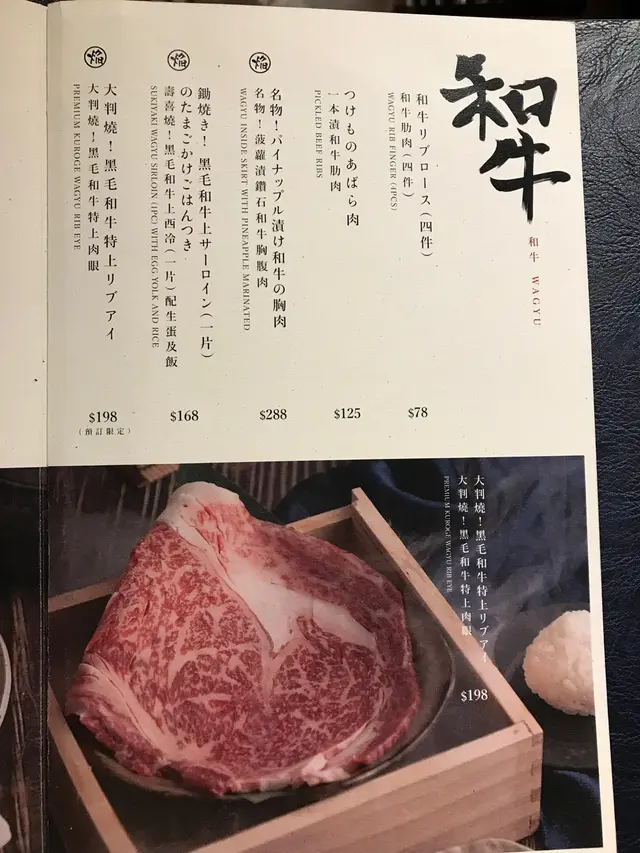 和牛
和牛 WAGYU
和牛リブロース(四件)
和牛肋肉(四件)
WAGYU RIB FINGER (4PCS)
$78
つけものあばら肉
一本漬和牛肋肉
PICKLED BEEF RIBS
$125
名物!パイナップル漬け和牛の胸肉
名物!菠蘿漬鑽石和牛胸腹肉
WAGYU INSIDE SKIRT WITH PINEAPPLE MARINATED
$288
鋤焼き!黒毛和牛上サーロイン(一片)
のたまごかけごはんつき
壽喜燒!黑毛和牛上西冷(一片)配生蛋及飯
SUKIYAKI WAGYU SIRLOIN (1PC) WITH EGG YOLK AND RICE
$168
大判燒!黒毛和牛特上リブアイ
大判燒!黑毛和牛特上肉眼
PREMIUM KUROGE WAGYU RIB EYE
$198
(預訂限定)
大判燒!黒毛和牛特上リブアイ
大判燒!黑毛和牛特上肉眼
PREMIUM KUROGE WAGYU RIB EYE
$198